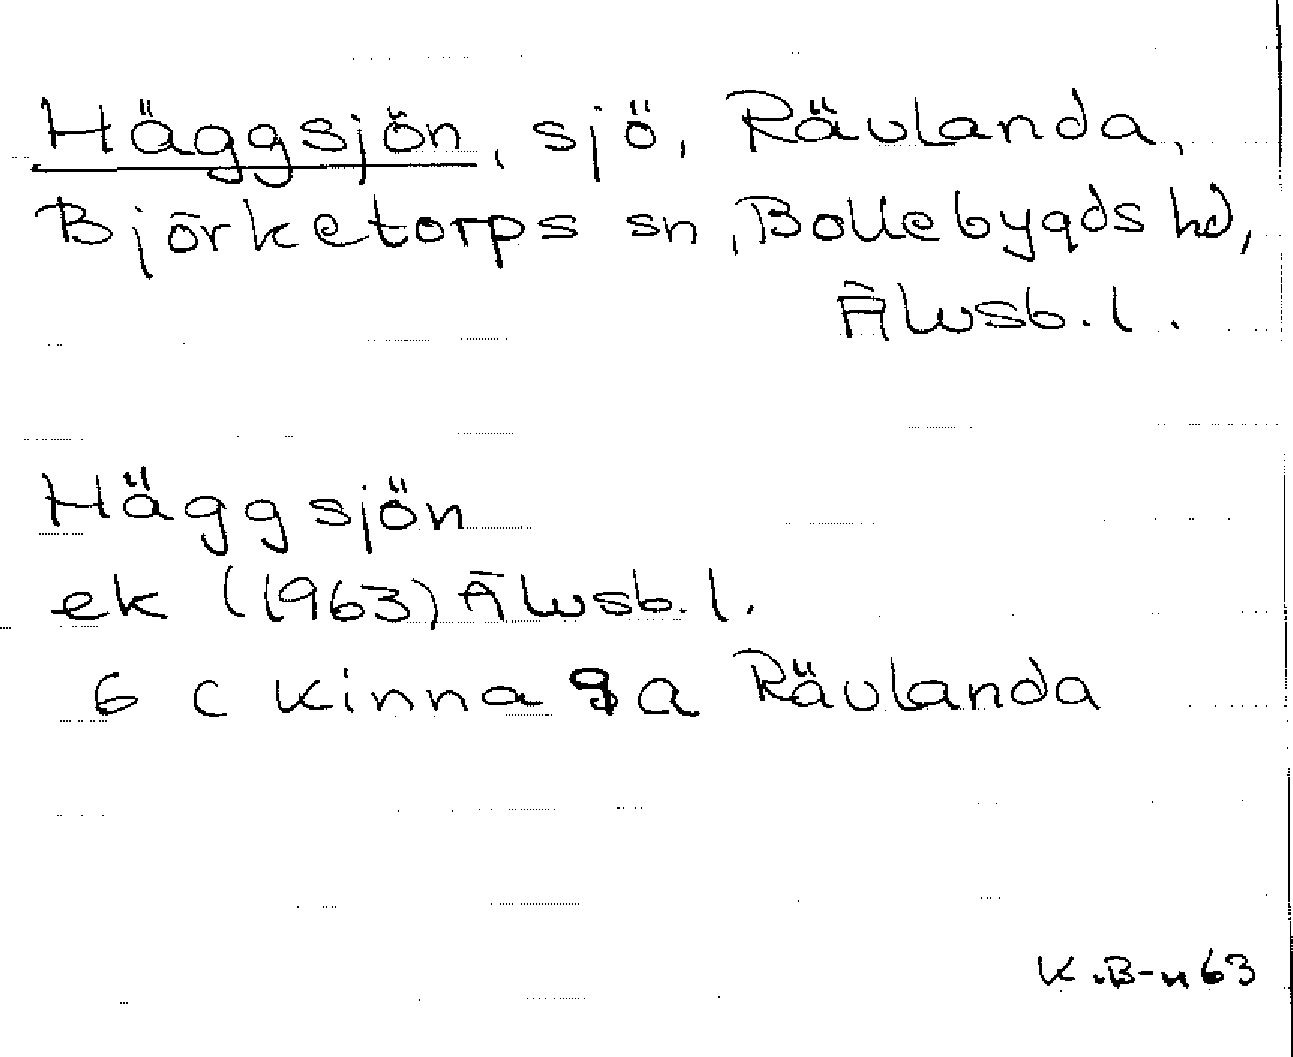 Häggsjön, sjö, Rävlanda,
Björketorps sn, Bollebygds hd,
Älvsb. l.
Häggsjön
ek (1963) Älvsb. l.
6 c Kinna 9 a Rävlanda
K.B-n 63